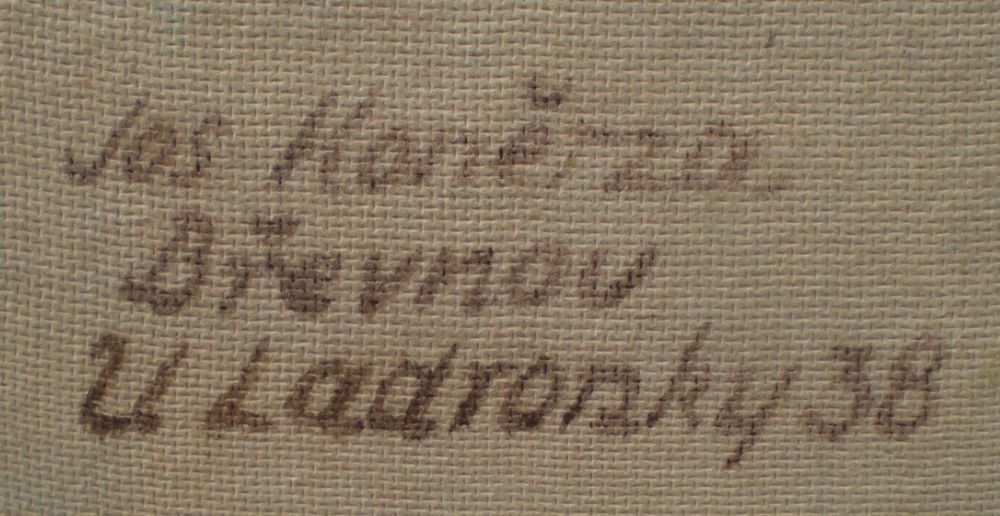 Jos
Břevnov
U Ladronky 38